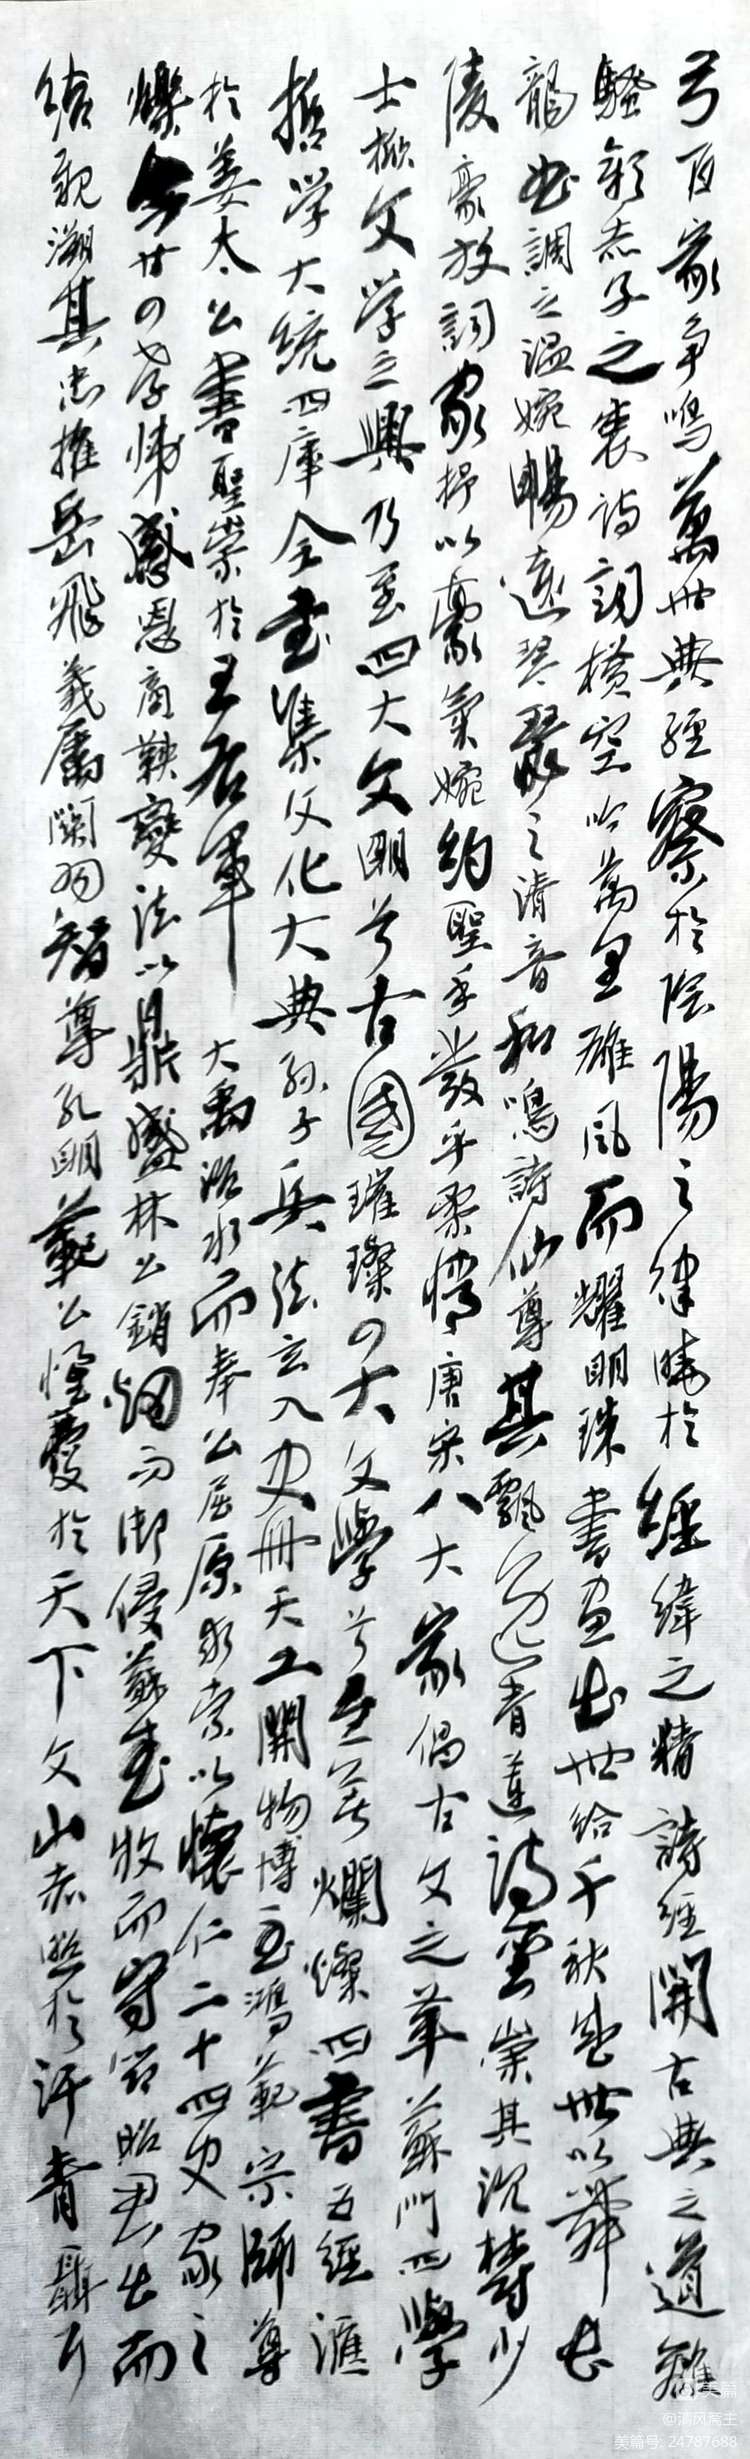 兮百家争鳴萬世典經察於陰陽之律曉於經緯之精詩經開古典之道離
騷彰赤子之衷诗詞横空吟萬里雄风而耀明珠書画出世给千秋盛世以舞长
龍曲調之温婉暢達琴瑟之清音和鳴詩仙尊其飄逸青蓮诗聖崇其沉鬱少
陵豪放詞家抒以豪氣婉約聖手發乎柔情唐宋八大家倡古文之革蘇門四學
士掀文学之興乃至四大文明兮古國璀璨の大文學兮生花爛燦四書五經滙
哲学大統四库全书集文化大典孙子兵法玄入史册天工開物博至鴻範宗師尊
於姜太公書聖崇於王右軍 大禹治水而奉公屈原求索以懷仁二十四史家之
爍今廿の孝悌感恩商鞅變法以鼎盛林公銷烟而御侵蘇武牧而守節昭君出而
结親溯其忠推岳飛義属関羽智尊孔明範公懷憂於天下文山赤照於汗青聶